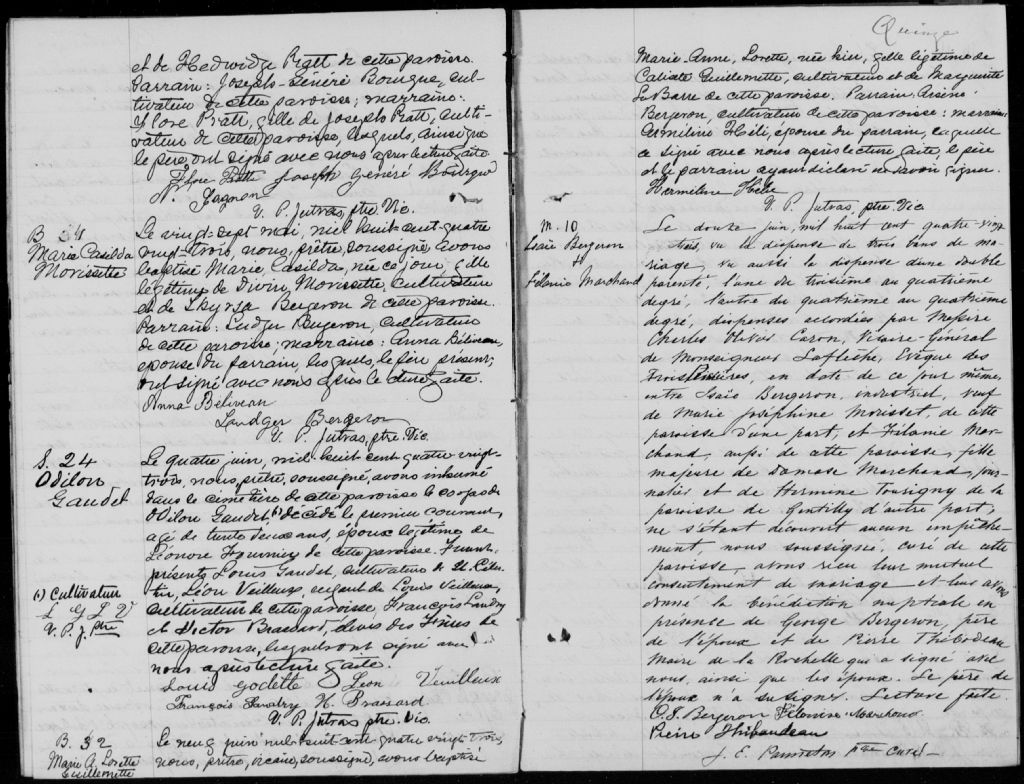 et de Hedwidge Pratt de cette paroisse.
Parrain: Joseph-Généré Bourque, cul-
tivateur de cette paroisse; marraine:
Flore Pratt, fille de Joseph Pratt, culti-
vateur de cette paroisse, lesquels, ainsi que
le père, ont signé avec nous après lecture faite
Flore Pratte Joseph Généré Bourque
N. Gagnon
V. P. Jutras, ptre. Vic.
B 31
Marie Casilda
Morissette
Le vingt-sept mai, mil huit-cent-quatre
vingt-trois, nous, prêtre, soussigné, avons
baptisé Marie, Casilda, née ce jour, fille
légitime de Morissette, cultivateur
et de Bergeron de cette paroisse.
Parrain: Ludger Bergeron, cultivateur
de cette paroisse; marraine: Anna Béliveau,
épouse du parrain, lesquels, le père présent,
ont signé avec nous après lecture faite.
Anna Béliveau
Ludger Bergeron
V. P. Jutras, ptre. Vic.
S. 24
Odilon
Gaudet
Le quatre juin, mil-huit cent quatre vingt-
trois, nous, prêtre, soussigné, avons inhumé
dans le cimetière de cette paroisse le corps de
Odilon Gaudet, (1) décédé le premier courant,
agé de trente deux ans, époux légitime de
Léonore Fournier de cette paroisse. Furent
présents Louis Gaudet, cultivateur de St. Céles-
tin, Léon Veilleux, enfant de Louis Veilleux,
cultivateur de cette paroisse, François Landry
et Victor Brassard, élèves des Frères de
cette paroisse, lesquels ont signé avec
nous après lecture faite.
(1) Cultivateur
L G L V
V. P. J. ptre
Louis Godette Léon Veuilleux
François Landry V. Brassard
V. P. Jutras ptre. Vic.
B. 32
Marie A. Lorette
Guillemette
Le neuf juin mil-huit cent quatre vingt trois,
nous, prêtre, vicaire, soussigné, avons baptisé
Quinze
Marie-Anne, Lorette, née hier, fille légitime de
Calixte Guillemette, cultivateur et de Marguerite
La Barre de cette paroisse. Parrain, Arsène
Bergeron, cultivateur de cette paroisse; marraine
Hermeline Héli, épouse du parrain, laquelle
a signé avec nous après lecture faite, le père
et le parrain ayant déclaré ne savoir signer.
Hermeline Hélie
V. P. Jutras ptre. Vic
M. 10
Isaïe Bergeron
+
Filanie Marchand
Le douze juin, mil huit cent quatre-vingt
trois, vu la dispense de trois bans de ma-
riage, vu aussi la dispense d'une double
parenté, l'une du troisième au quatrième
degré, l'autre du quatrième au quatrième
degré, dispenses accordées par Messire
Charles Olivier Caron, Vicaire-Général
de Monseigneur Laflèche, Evêque des
Trois Rivières, en date de ce jour même,
entre Isaïe Bergeron, industriel, veuf
de Marie Josephine Morisset, de cette
paroisse d'une part; et Filanie Mar-
chand, aussi de cette paroisse, fille
majeure de Damase Marchand, jour-
nalier et de Hermine Tourigny de la
paroisse de Gentilly d'autre part;
ne s'étant découvert aucun empêche-
ment, nous soussigné, curé de cette
paroisse, avons reçu leur mutuel
consentement de mariage et leur avons
donné la bénédiction nuptiale en
présence de George Bergeron, père
de l'époux et de Pierre Thibodeau
Maire de la Rochelle qui a signé avec
nous, ainsi que les époux. Le père de
l'époux n'a su signer. Lecture faite.
Bergeron Filanise Marchand
Pierre Thibaudeau
J. E. Panneton Ptre Curé